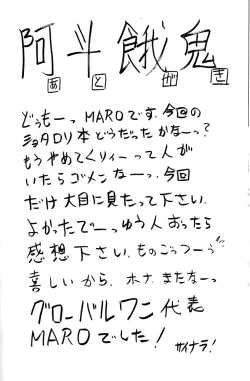 阿斗餓鬼
あとがき
どぅもーっ MAROです。今回の
ショタロリ本どうだったかなーっ?
もうやめてくりぃーって人が
いたらゴメンなーっ、今回
だけ大目に見たって下さい.
よかったでーっゆう人おったら
感想下さい. ものごっつーぅ
喜しいから、ホナ、またなーっ
グローバルワニ代表
MAROでした!
サイナラ!